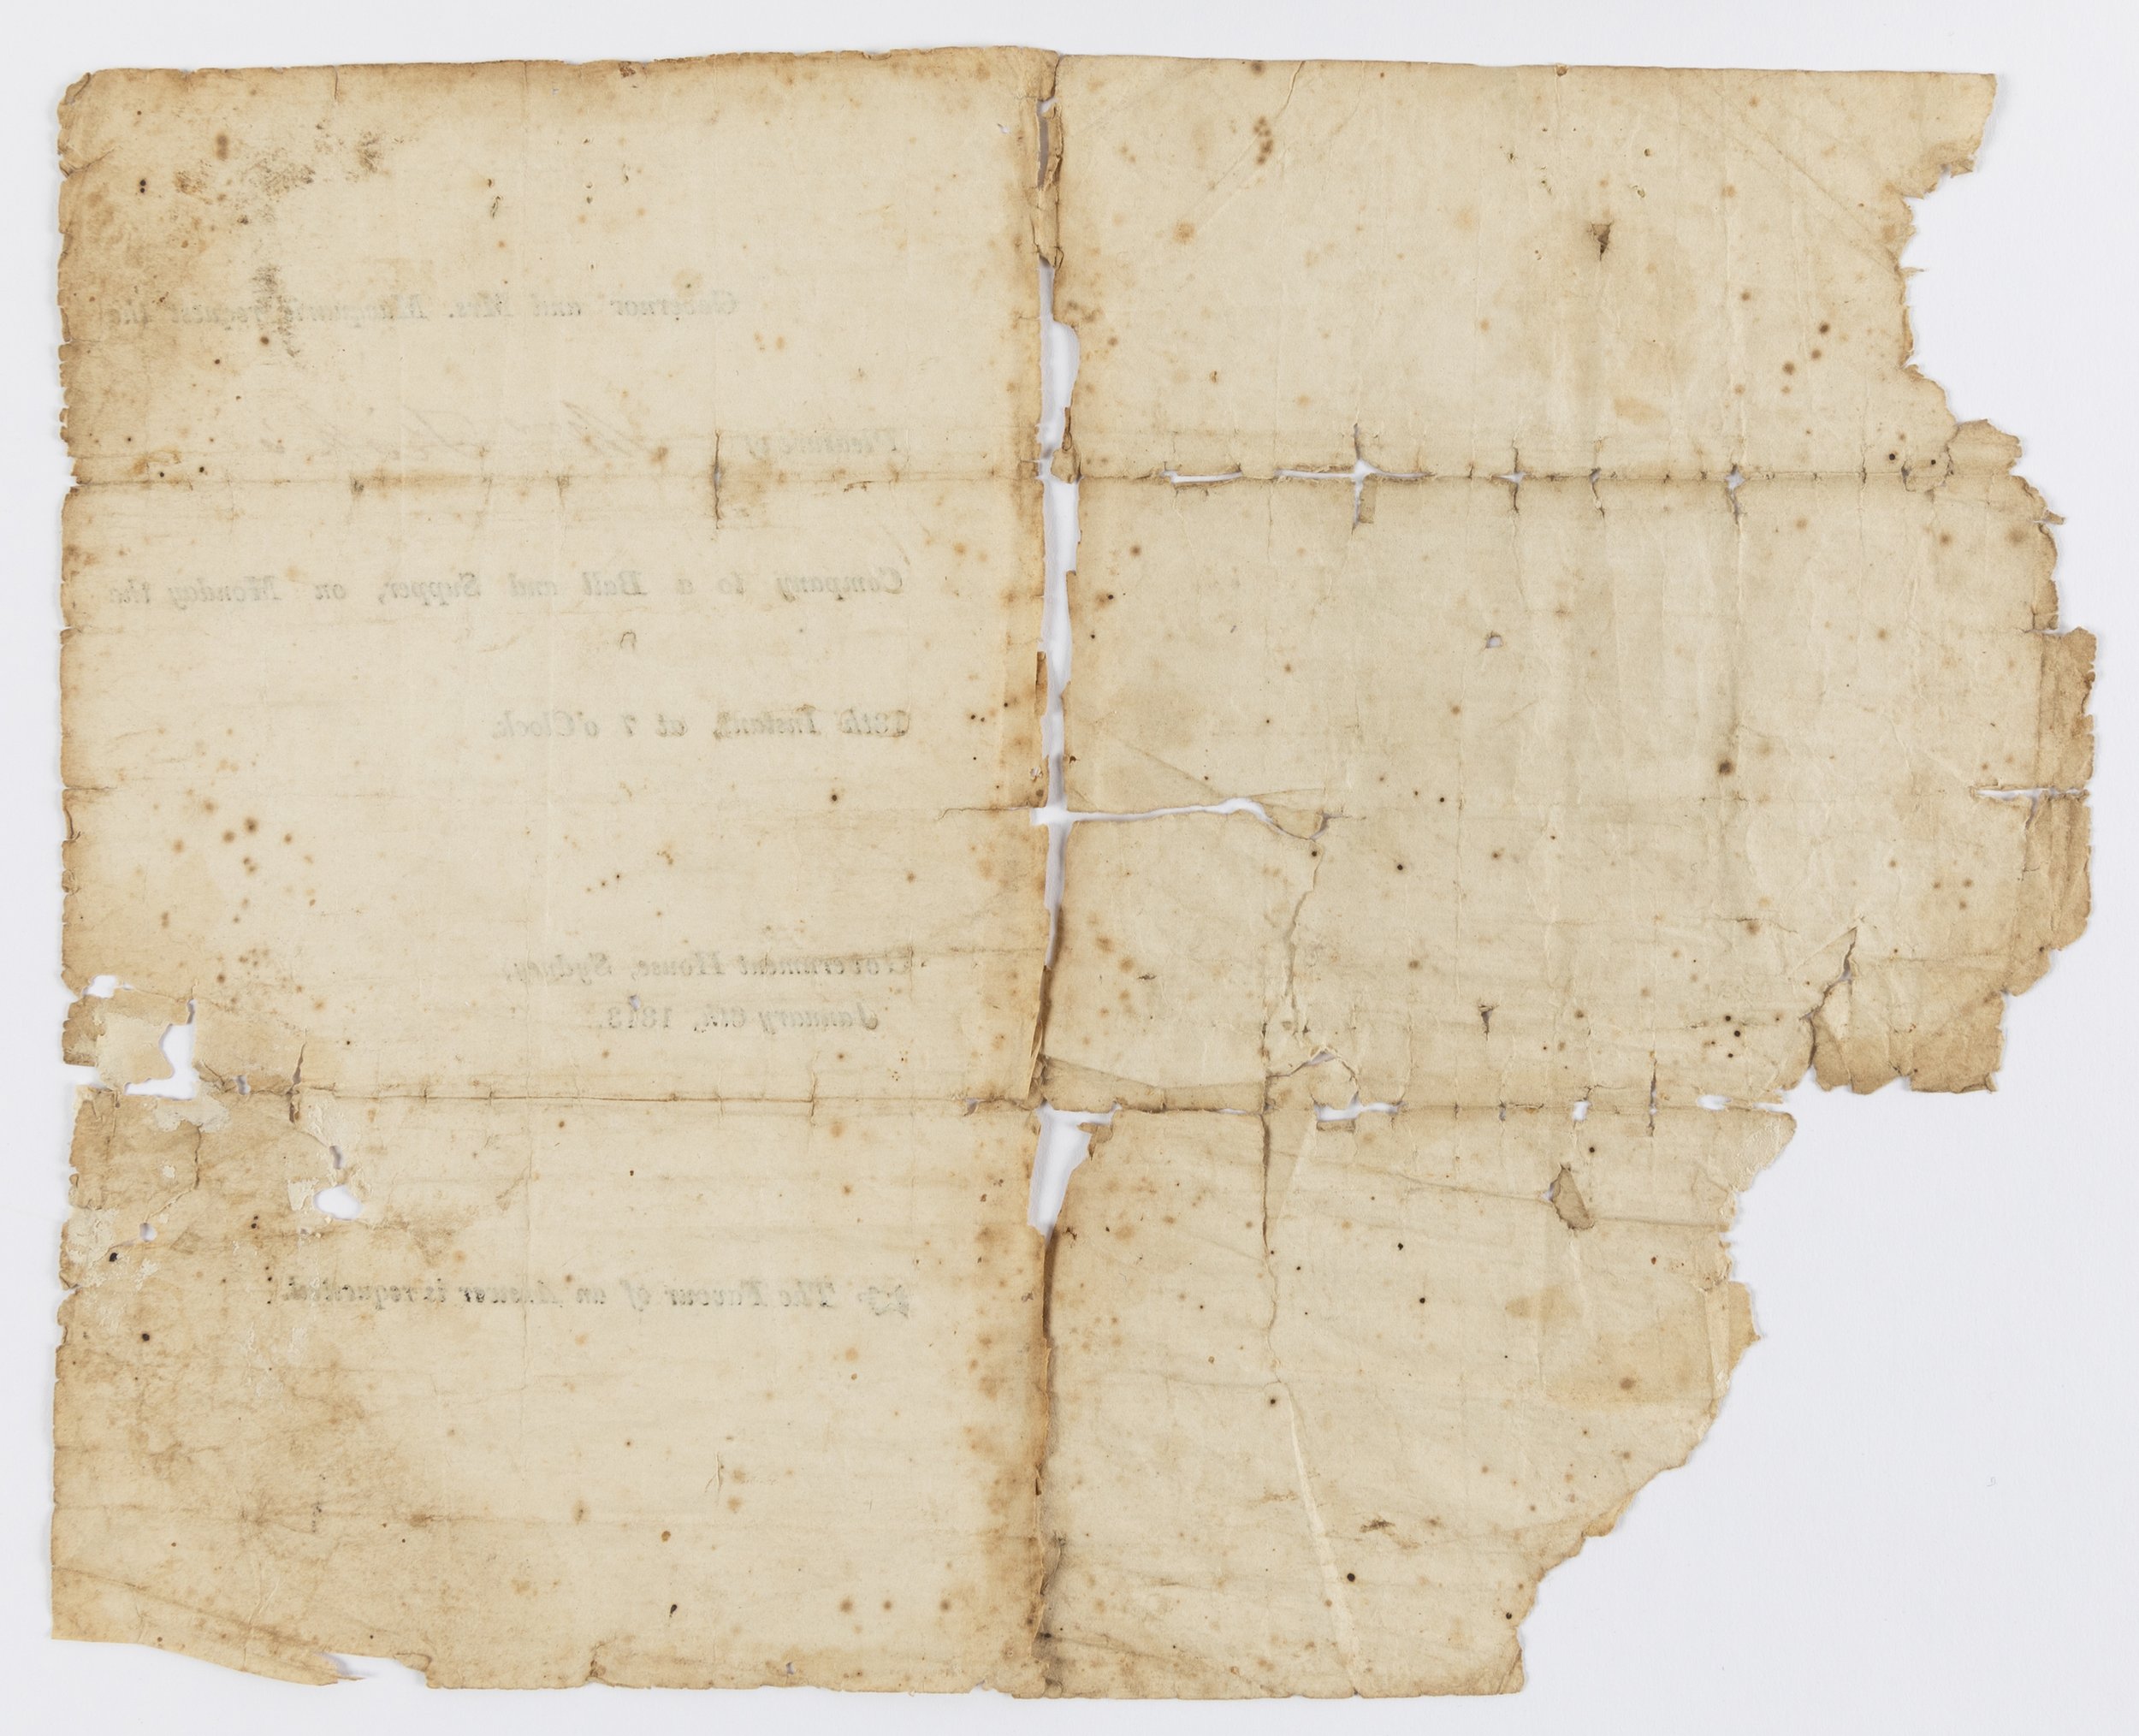 Governor and Mrs. Macquarie request the
Pleasure of
Company to a Ball and Supper, on Monday the
18th Instant, at 7 o'Clock.
Government House, Sydney,
January 6th, 1813.
The Favour of an Answer is requested.